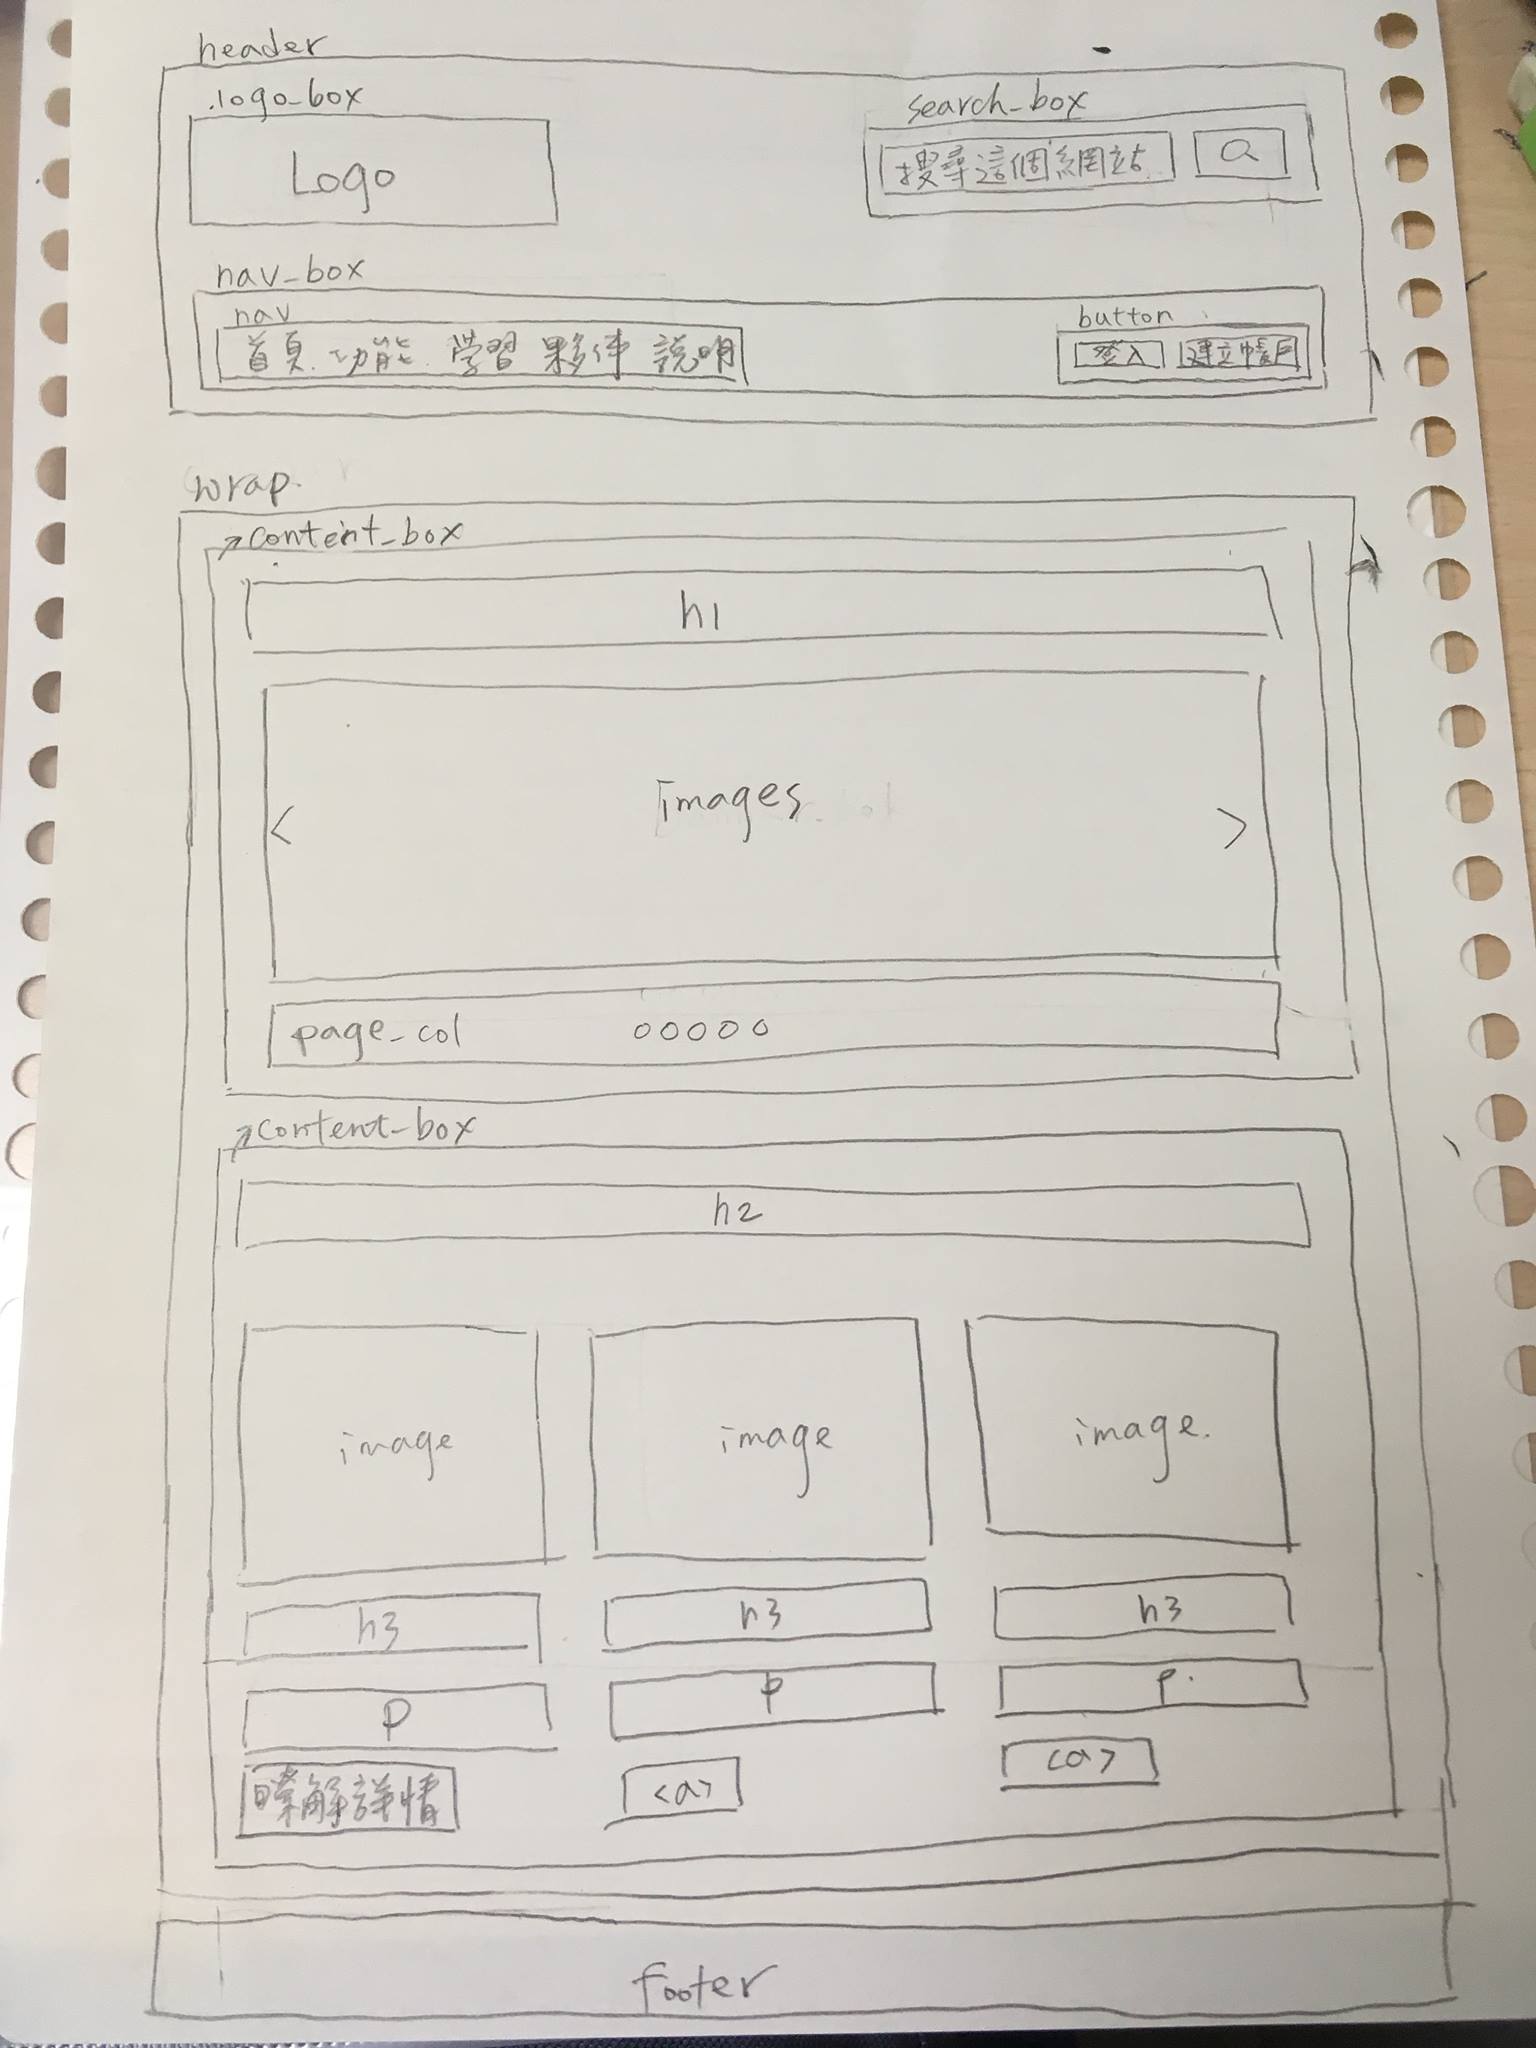 header
.logo_box
search_box
Logo
搜尋這個網站
nav_box
nav
button
首頁 功能 学習 夥伴 説明
登入 建立帳戶
wrap.
content_box
h1
< images >
page_col ooooo
content_box
h2
image image image.
h3 h3 h3
p p p.
瞭解詳情 <a> <a>
footer